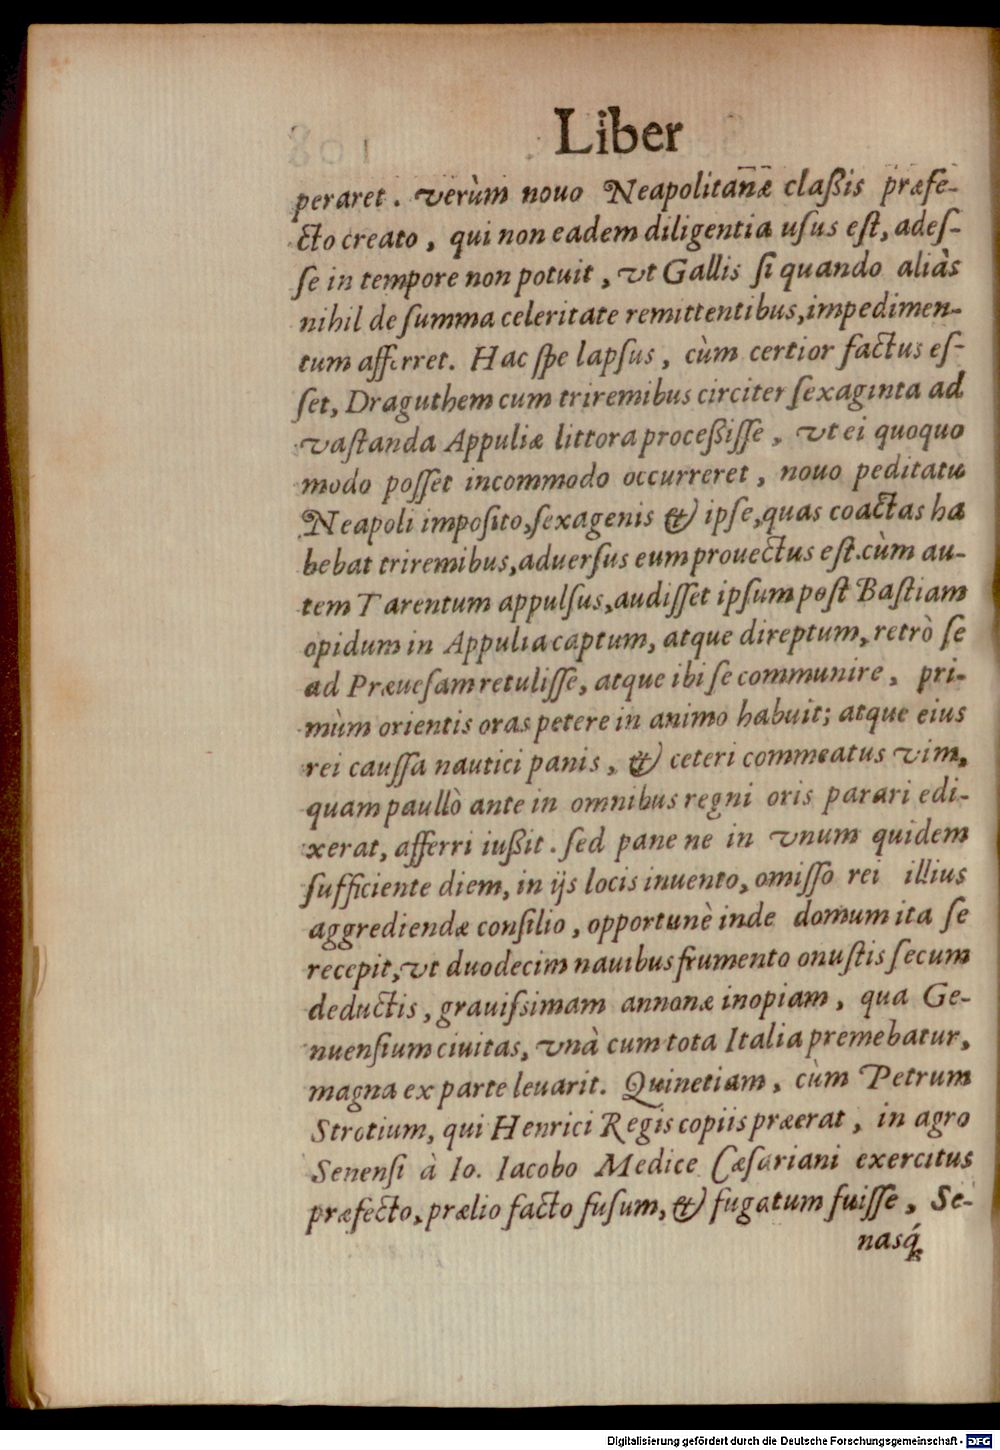 Liber
peraret. verùm nouo Neapolitanæ claßis præfe-
cto creato, qui non eadem diligentia usus est, adeſ-
ſe in tempore non potuit, vt Gallis ſi quando aliàs
nihil de ſumma celeritate remittentibus, impedimen-
tum afferret. Hac ſpe lapſus, cùm certior factus eſ-
ſet, Draguthem cum triremibus circiter ſexaginta ad
vaſtanda Appuliæ littora proceßiſſe, vt ei quoquo
modo poſſet incommodo occurreret, nouo peditatu
Neapoli impoſito, ſexagenis & ipſe, quas coactas ha
bebat triremibus, aduerſus eum prouectus eſt. cùm au-
tem Tarentum appulſus, audiſſet ipſum poſt Baſtiam
opidum in Appulia captum, atque direptum, retrò ſe
ad Præueſam retuliſſe, atque ibi ſe communire, pri-
mùm orientis oras petere in animo habuit; atque eius
rei cauſſa nautici panis, & ceteri commeatus vim,
quam paullò ante in omnibus regni oris parari edi-
xerat, afferri iußit. ſed pane ne in vnum quidem
ſufficiente diem, in ijs locis inuento, omiſſo rei illius
aggrediendæ conſilio, opportunè inde domum ita ſe
recepit, vt duodecim nauibus frumento onuſtis ſecum
deductis, grauiſsimam annonæ inopiam, qua Ge-
nuenſium ciuitas, vnà cum tota Italia premebatur,
magna ex parte leuarit. Quinetiam, cùm Petrum
Strotium, qui Henrici Regis copiis præerat, in agro
Senenſi à Io. Iacobo Medice Cæſariani exercitus
præfecto, prælio facto fuſum, & fugatum fuiſſe, Se-
nasq́
Digitalisierung gefördert durch die Deutsche Forschungsgemeinschaft - DFG